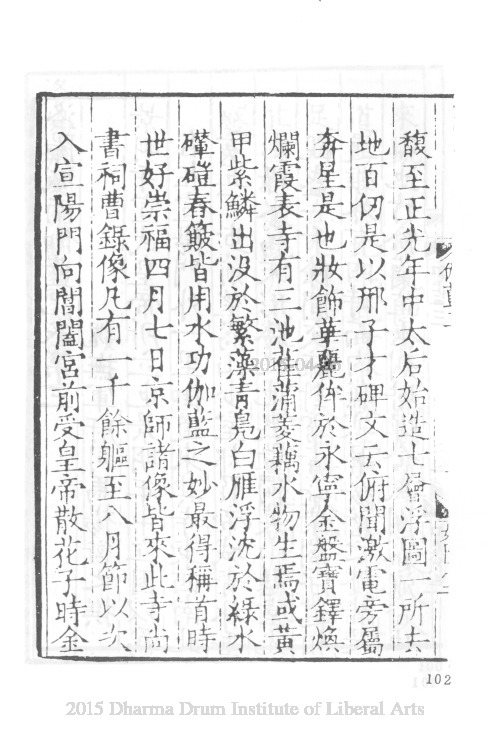 馥至正光年中太后始造七層浮圖一所去
地百仞是以邢子才碑文云俯聞激電旁屬
奔星是也妝飾華麗侔於永寧金盤寶鐸煥
爛霞表寺有三池萑蒲菱藕水物生焉或黃
甲紫鱗出没於繁藻青鳧白雁浮沈於綠水
磑舂簸皆用水功伽藍之妙最得稱首時
世好崇福四月七日京師諸像皆來此寺尚
書祠曹錄像凡有一千餘軀至八月節以次
入宣陽門向閶闔宮前受皇帝散花于時金
102
2015 Dharma Drum Institute of Liberal Arts